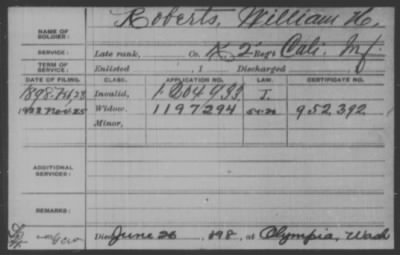 NAME OF SOLDIER: Roberts, William H.
SERVICE: Late rank, Co. K, 2" Reg't Cali. Inf.
TERM OF SERVICE: Enlisted , 1 Discharged
DATE OF FILING. CLASS. APPLICATION NO. LAW. CERTIFICATE NO.
1898 Feb 23 Invalid, 1.204933 J.
Nov. 25 Widow, 1197294 952.392
Minor,
ADDITIONAL SERVICES:
REMARKS:
Died June 26, 898, at Olympia, Wash